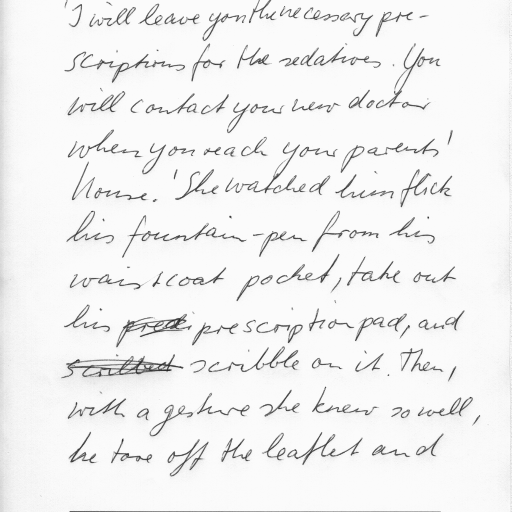 'I will leave you the necessary pre-
scriptions for the sedatives. You
will contact your new doctor
when you reach your parents'
house.' She watched him flick
his fountain-pen from his
waistcoat pocket, take out
his prescription pad, and
scribble on it. Then,
with a gesture she knew so well,
he tore off the leaflet and